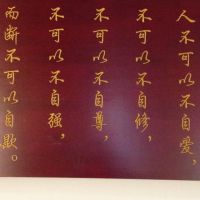 人不可以不自爱，
不可以不自修，
不可以不自尊，
不可以不自强，
而断不可以自欺。